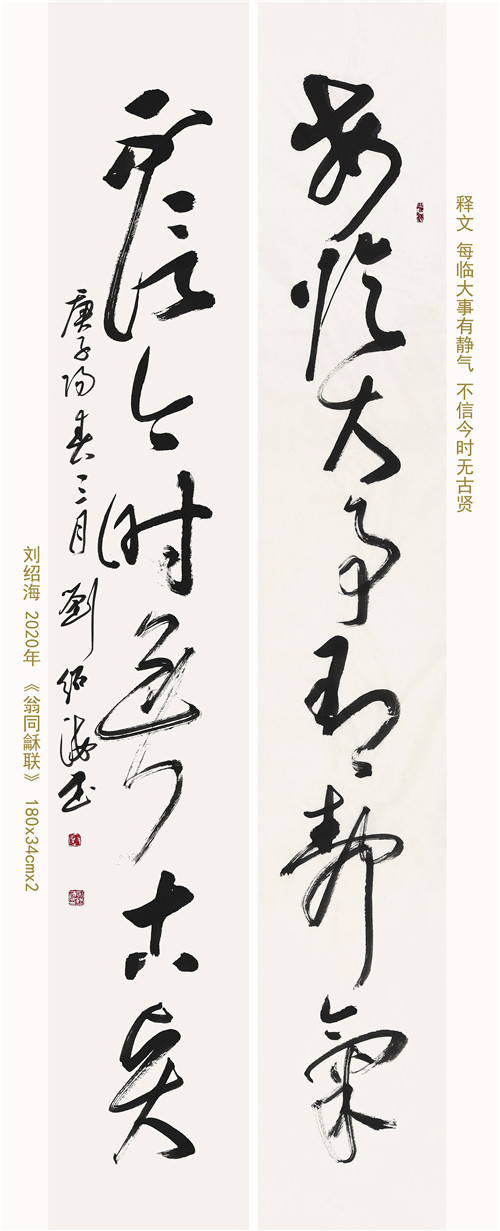 释文 每临大事有静气 不信今时无古贤
每临大事有静氣
不信今时无古贤
庚子阳春三月 劉绍海书
刘绍海 2020年 《翁同龢联》 180x34cmx2